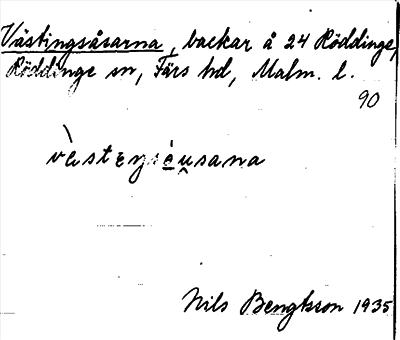 Västingsåsarna, backar å 24 Röddinge,
Röddinge sn, Färs hd, Malm. l.
90
vàsteŋsèu̯sana
Nils Bengtsson 1935